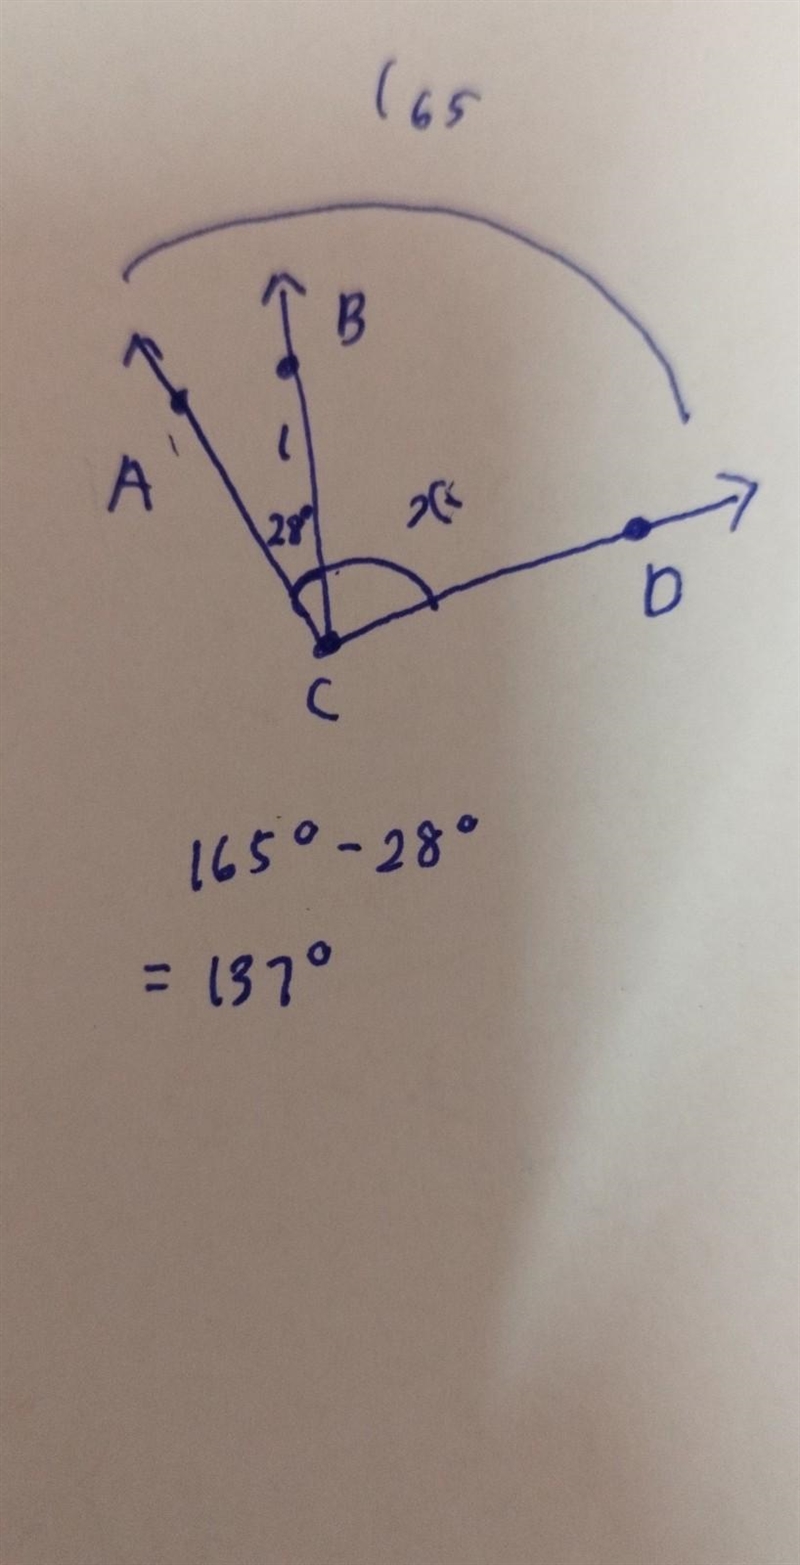 165
B
A
1
28°
x
D
C
165° - 28°
= 137°